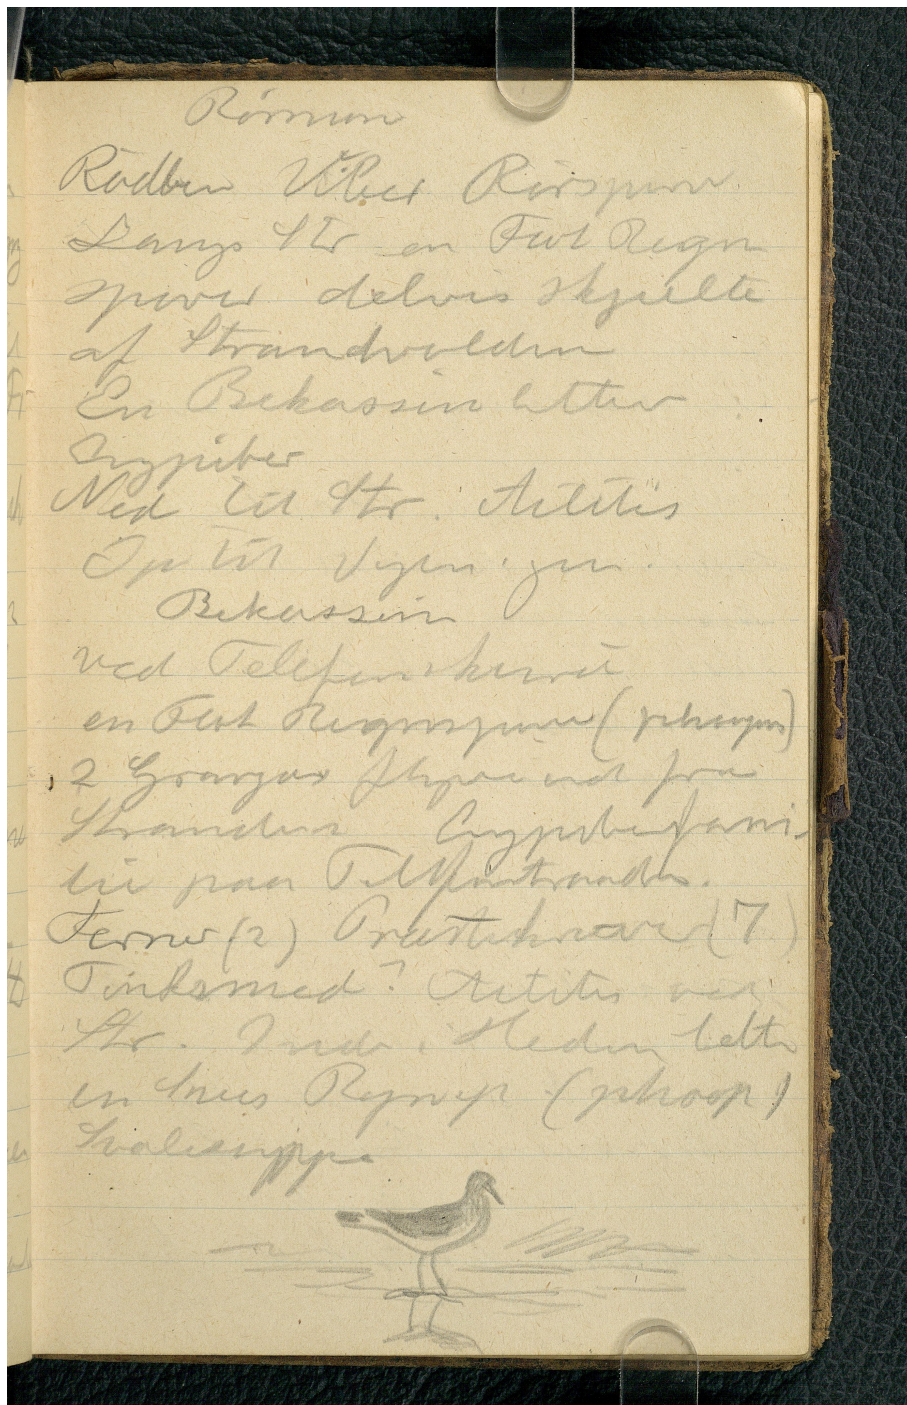 Rörmon
Rødben Viber Rørspurv
Langs Str en Flok Regn
spover delvis skjulte
af Strandvolden
En Bekassin letter
Engpiber
Ned til Str. Actitis
Op til Vejen igen.
Bekassin
ved Telefon
en Flok Regnspover (phaeopus)
2 Graagæs flyve ind fra
Stranden Engpiberfami-
lie paa Telefontraaden.
Terner (2) Præstekraver (7)
Tinksmed? Actitis ved
Str. Inde i Heden lette
en Snes Regnsp (phaeop)
Svalesuppe